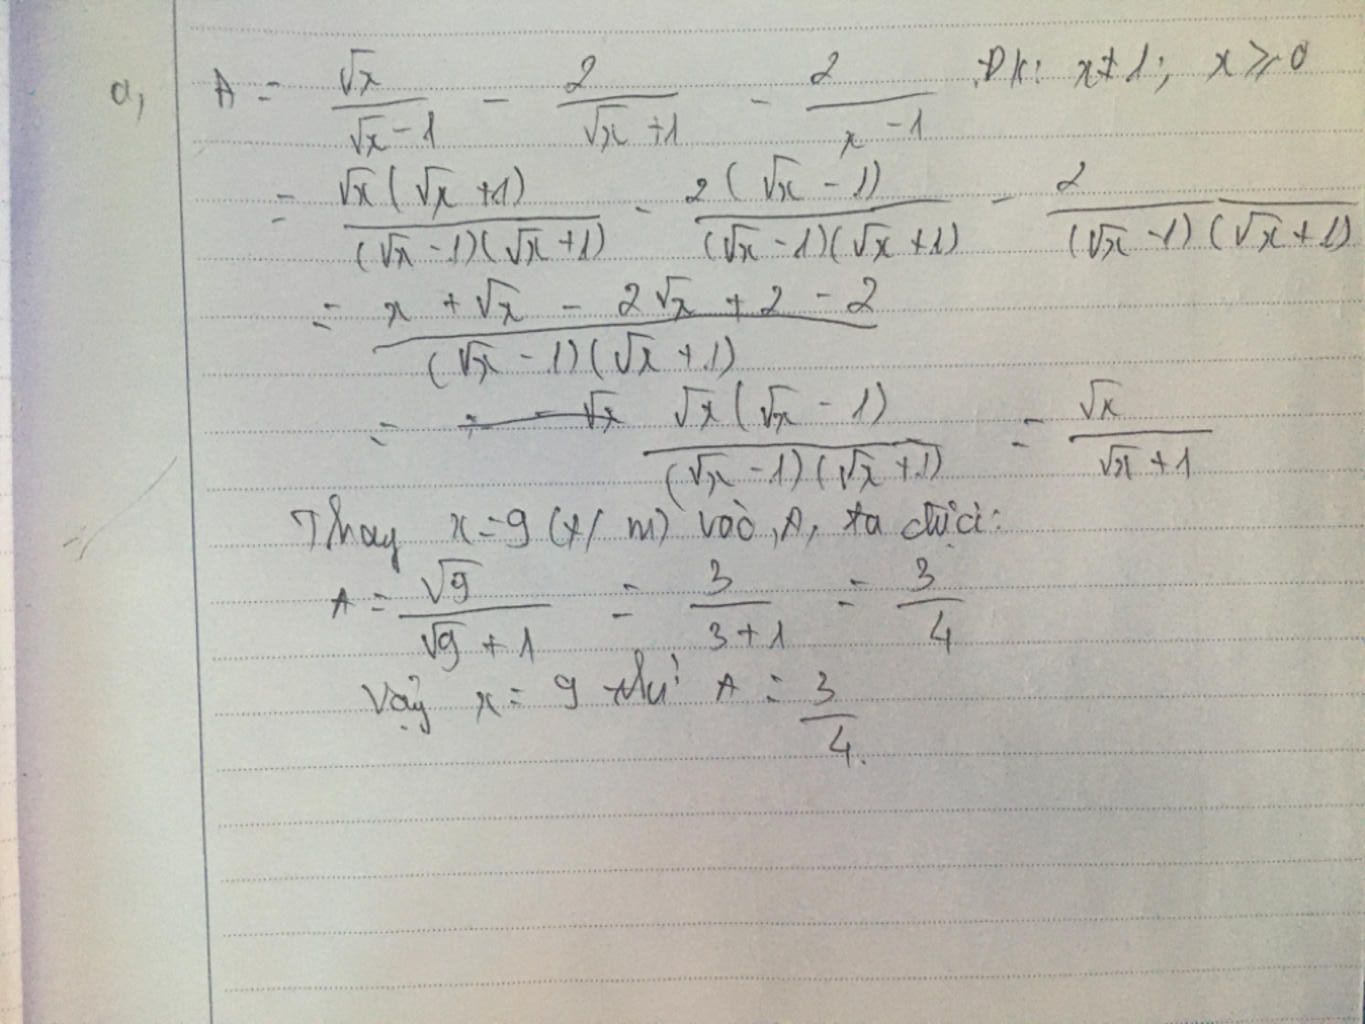 a, A = \frac{\sqrt{x}}{\sqrt{x}-1} - \frac{2}{\sqrt{x}+1} - \frac{2}{x-1} ĐK: x ≠ 1; x ⩾ 0
= \frac{\sqrt{x}(\sqrt{x}+1)}{(\sqrt{x}-1)(\sqrt{x}+1)} - \frac{2(\sqrt{x}-1)}{(\sqrt{x}-1)(\sqrt{x}+1)} - \frac{2}{(\sqrt{x}-1)(\sqrt{x}+1)}
= \frac{x+\sqrt{x}-2\sqrt{x}+2-2}{(\sqrt{x}-1)(\sqrt{x}+1)}
= \frac{\sqrt{x}(\sqrt{x}-1)}{(\sqrt{x}-1)(\sqrt{x}+1)} = \frac{\sqrt{x}}{\sqrt{x}+1}
Thay x = 9 (t/m) vào A, ta được:
A = \frac{\sqrt{9}}{\sqrt{9}+1} = \frac{3}{3+1} = \frac{3}{4}
Vậy x = 9 thì A = \frac{3}{4}.